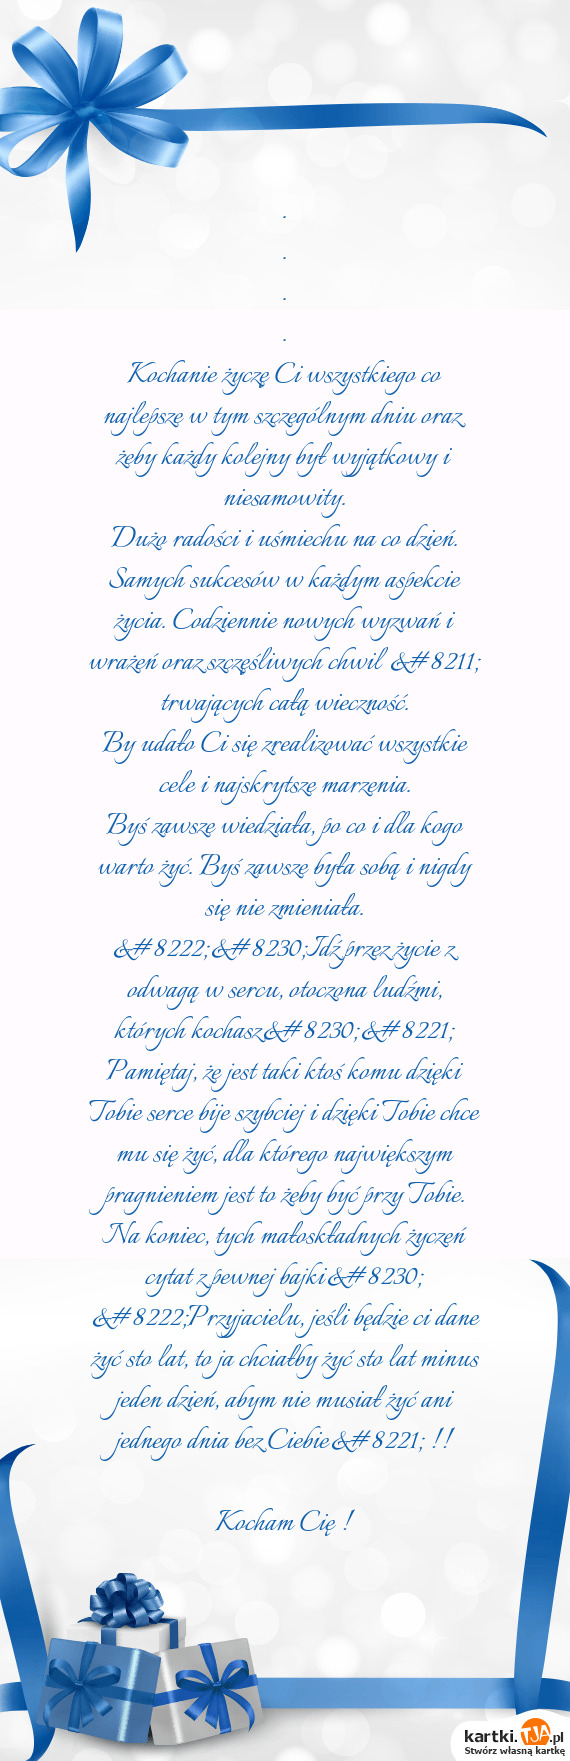 .
.
.
.
Kochanie życzę Ci wszystkiego co
najlepsze w tym szczególnym dniu oraz
żeby każdy kolejny był wyjątkowy i
niesamowity.
Dużo radości i uśmiechu na co dzień.
Samych sukcesów w każdym aspekcie
życia. Codziennie nowych wyzwań i
wrażeń oraz szczęśliwych chwil &#8211;
trwających całą wieczność.
By udało Ci się zrealizować wszystkie
cele i najskrytsze marzenia.
Byś zawsze wiedziała, po co i dla kogo
warto żyć. Byś zawsze była sobą i nigdy
się nie zmieniała.
&#8222;&#8230;Idź przez życie z
odwagą w sercu, otoczona ludźmi,
których kochasz&#8230;&#8221;
Pamiętaj, że jest taki ktoś komu dzięki
Tobie serce bije szybciej i dzięki Tobie chce
mu się żyć, dla którego największym
pragnieniem jest to żeby być przy Tobie.
Na koniec, tych małoskładnych życzeń
cytat z pewnej bajki&#8230;
&#8222;Przyjacielu, jeśli będzie ci dane
żyć sto lat, to ja chciałby żyć sto lat minus
jeden dzień, abym nie musiał żyć ani
jednego dnia bez Ciebie&#8221; !!
Kocham Cię !
kartki.TJA.pl
Stwórz własną kartkę